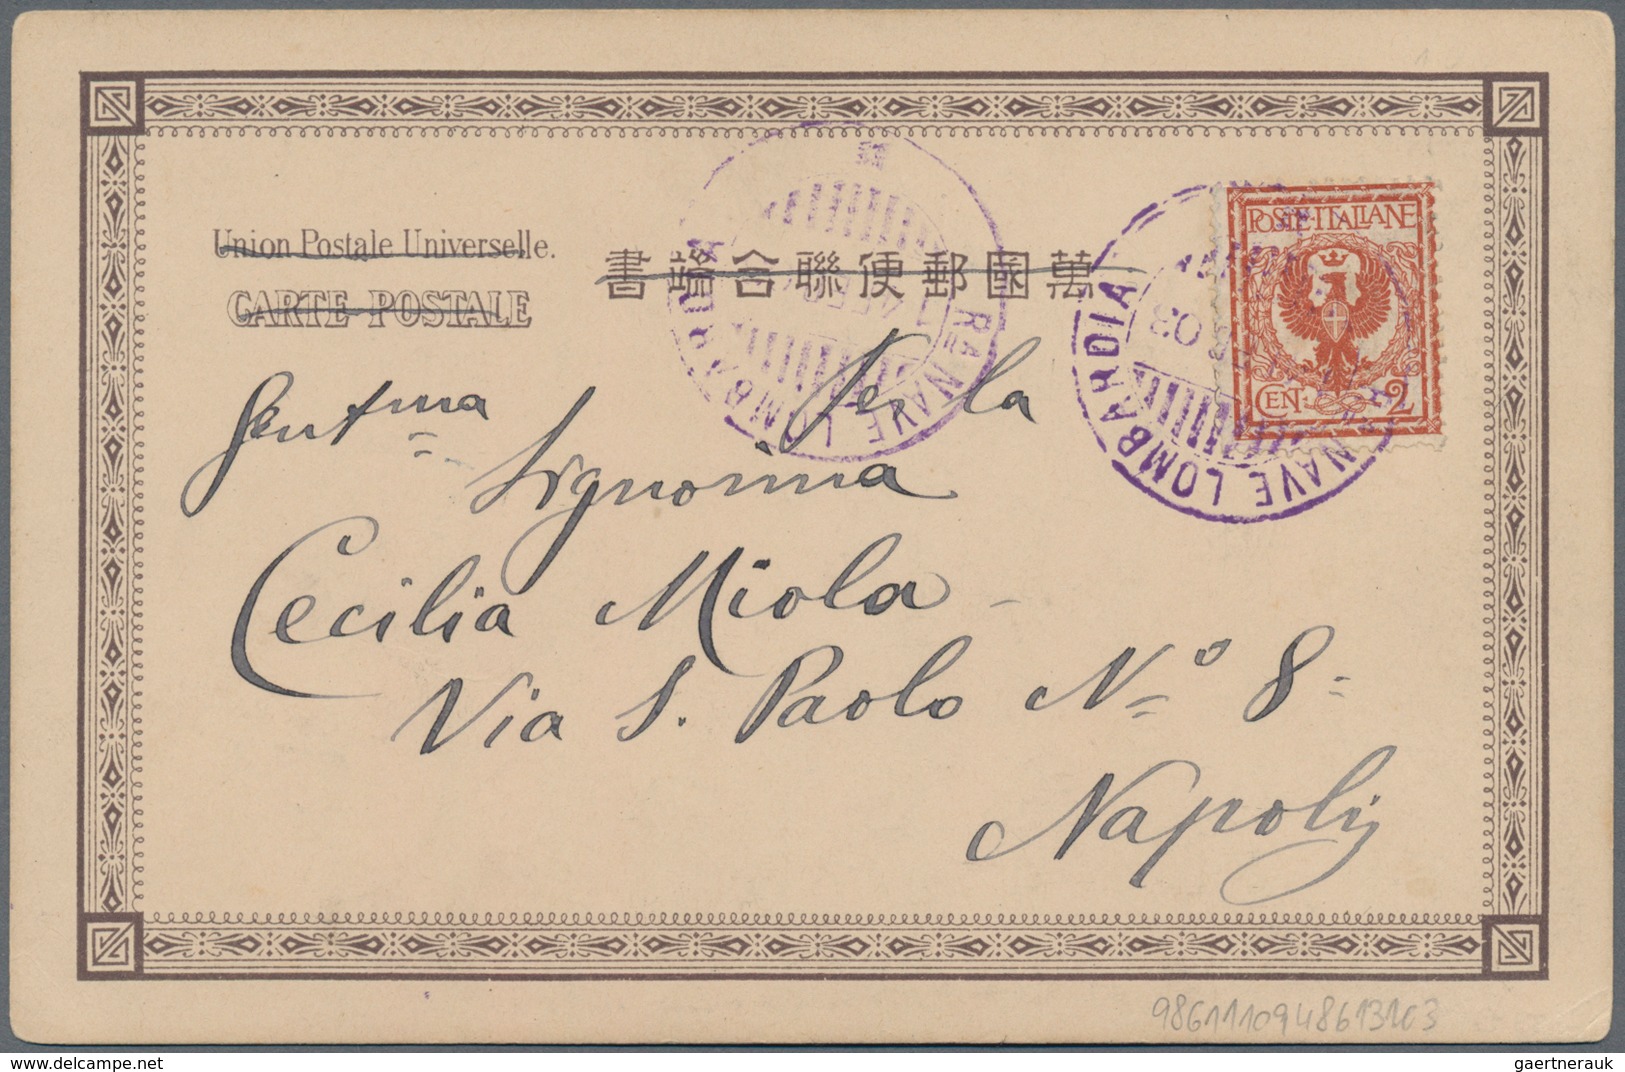 Union Postale Universelle.
CARTE POSTALE
書端合聯便郵國萬
POSTE ITALIANE
CEN. 2
Rª NAVE LOMBARDIA
Rª NAVE LOMBARDIA
03
Gentma Per la
Signorina
Cecilia Miola
Via S. Paolo Nº 8
Napoli
9861110948613103
gaertnerauk
www.delcampe.net